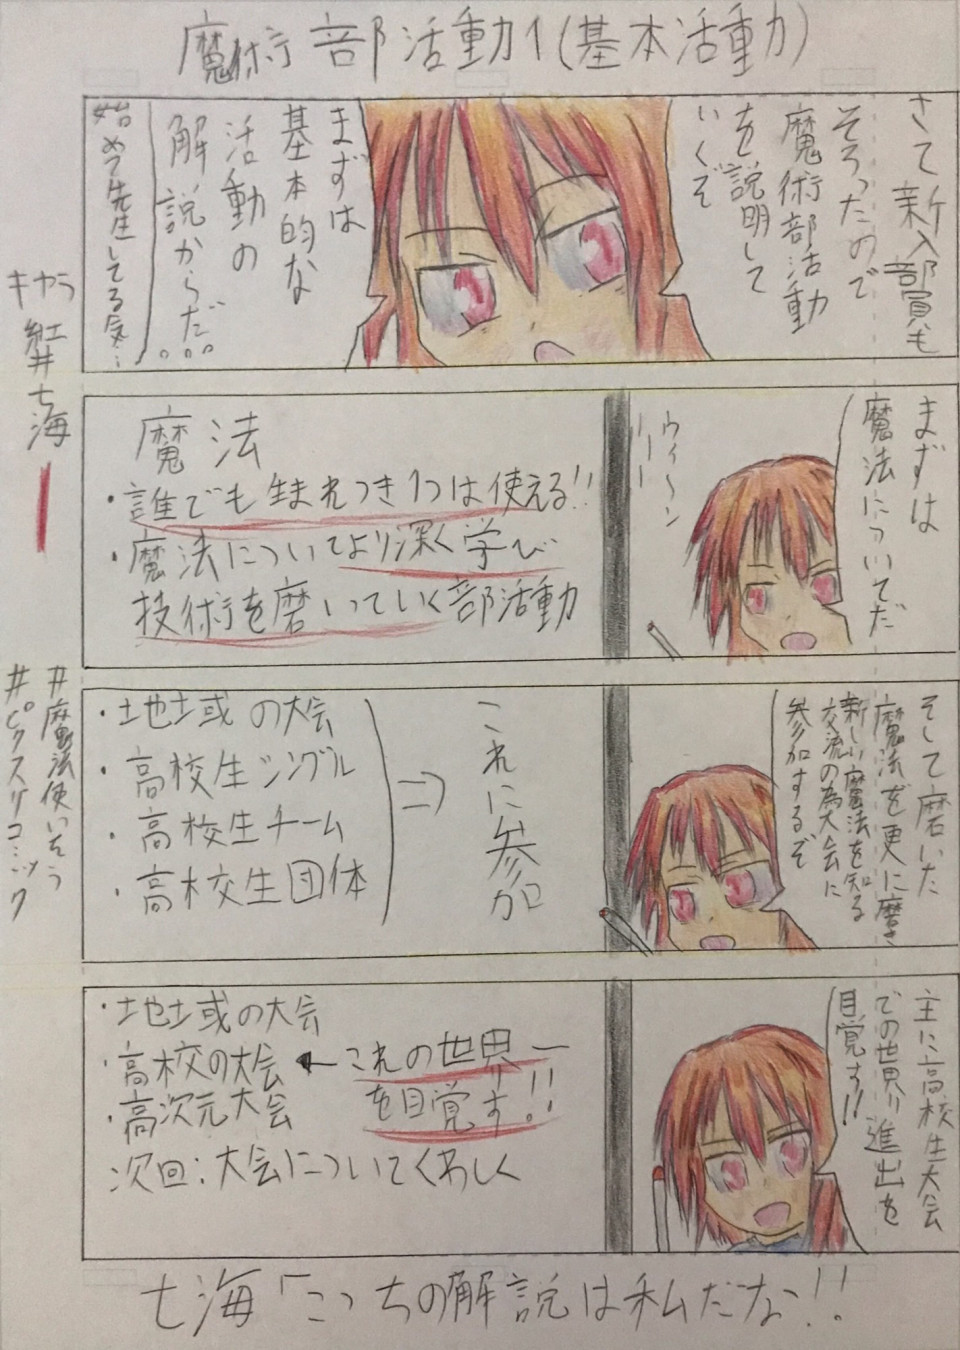 魔術部活動1(基本活動)
さて新入部員も
そろったので
魔術部活動
を説明して
いくぞ
まずは
基本的な
活動の
解説からだ。
。。
始めて先生してる気…
キャラ
紅井七海
まずは
魔法についてだ
ウィ〜ン
魔法
・誰でも生まれつき1つは使える!!
・魔法についてより深く学び
技術を磨いていく部活動
そして磨いた
魔法を更に磨き
新しい魔法を知る
交流の為大会に
参加するぞ
・地域の大会
・高校生シングル
・高校生チーム
・高校生団体
⇒
これに参加
#魔法使いそう
#ピクスリコミック
主に高校生大会
での世界進出を
目覚す!!
・地域の大会
・高校の大会 ←これの世界一
を目覚す!!
・高次元大会
次回:大会についてくわしく
七海「こっちの解説は私だな!!